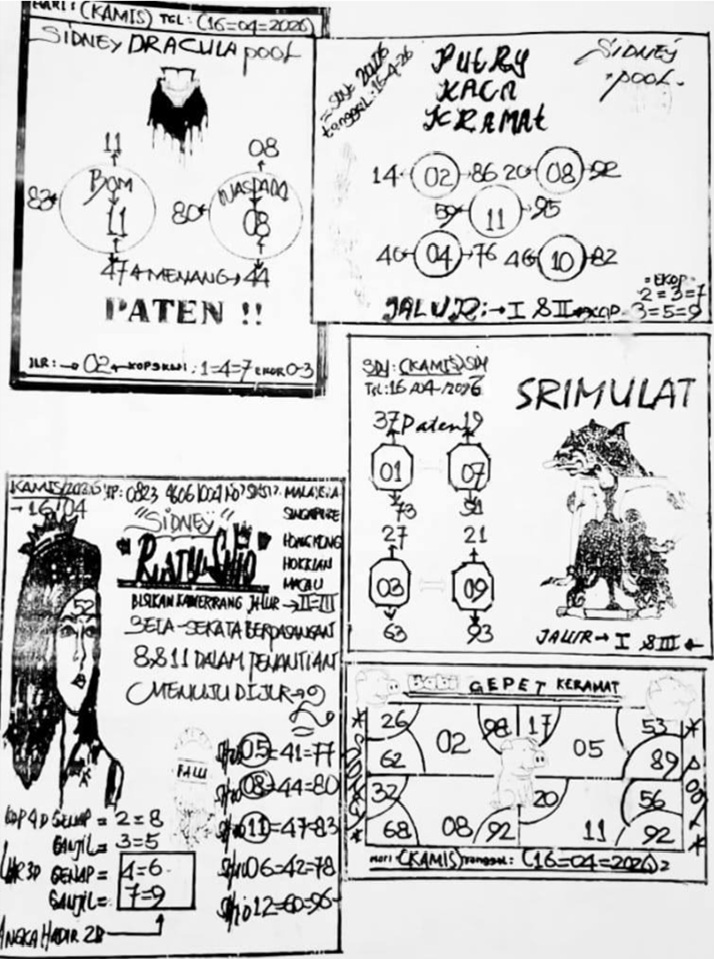 HARI : (KAMIS) TGL : (16=04=2026)
SIDNEY DRACULA POOL
11
08
BOM
WASPADA
83
11
80
08
47 MENANG 44
PATEN !!
JLR : 02 KOP 1=4=7 EKOR 0-3
SDY 2026
tanggal : 16-4-26
PUTRY
KACA
KRAMAT
SIDNEY
POOL
14 02 86 20 08 92
59 11 95
40 04 76 46 10 82
=EKOP=
2=3=7
JALUR : I & II KOP 3=5=9
SDY : (KAMIS) SDY
TGL : 16/04/2026
SRIMULAT
37 Paten 19
01 07
73 91
27 21
03 09
63 93
JALUR I & III
KAMIS/2026 HP : 0823
16/04
MALAYSIA
SINGAPURE
HONGKONG
HOKKIAN
MACAU
"SIDNEY"
"RATU SHIO"
BISIKAN KAMERRANG JALUR II=III
SELA-SEKATA BERPASANGAN
8&11 DALAM PENANTIAN
MENUJU DIJLR 2
52
Shio 05=41=77
Shio 08=44=80
Shio 11=47=83
Shio 06=42=78
Shio 12=60=96
KOP 4D GENAP = 2=8
GANJIL = 3=5
LHR 3D GENAP = 4=6
GANJIL = 7=9
ANGKA HADIR 2D
BABI GEPET KERAMAT
26 02 98 17 05 53
62 89
32 20 56
68 08 92 11 92
Hari (KAMIS) Tanggal : (16=04=2026)